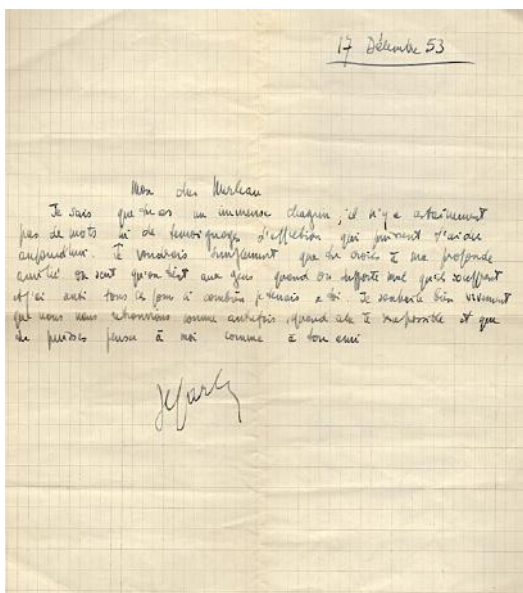 17 Décembre 53
Mon cher Merleau
Je sais que tu as un immense chagrin, il n'y a certainement
pas de mots ni de temoignages d'affection qui puissent t'aider
aujourdhui. Je voudrais simplement que tu croies à ma profonde
amitié on sent qu'on tient aux gens quand on supporte mal qu'ils souffrent
et j'ai senti tous ces jours à combien je tenais à toi. Je souhaite bien vivement
que nous nous retrouvions comme autrefois, quand cela te sera possible et que
tu puisses penser à moi comme à ton ami